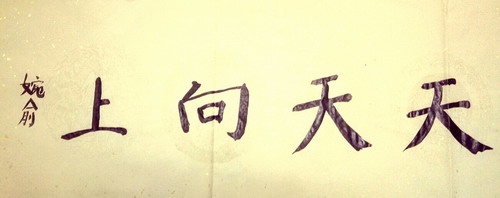 天天向上
婉俞